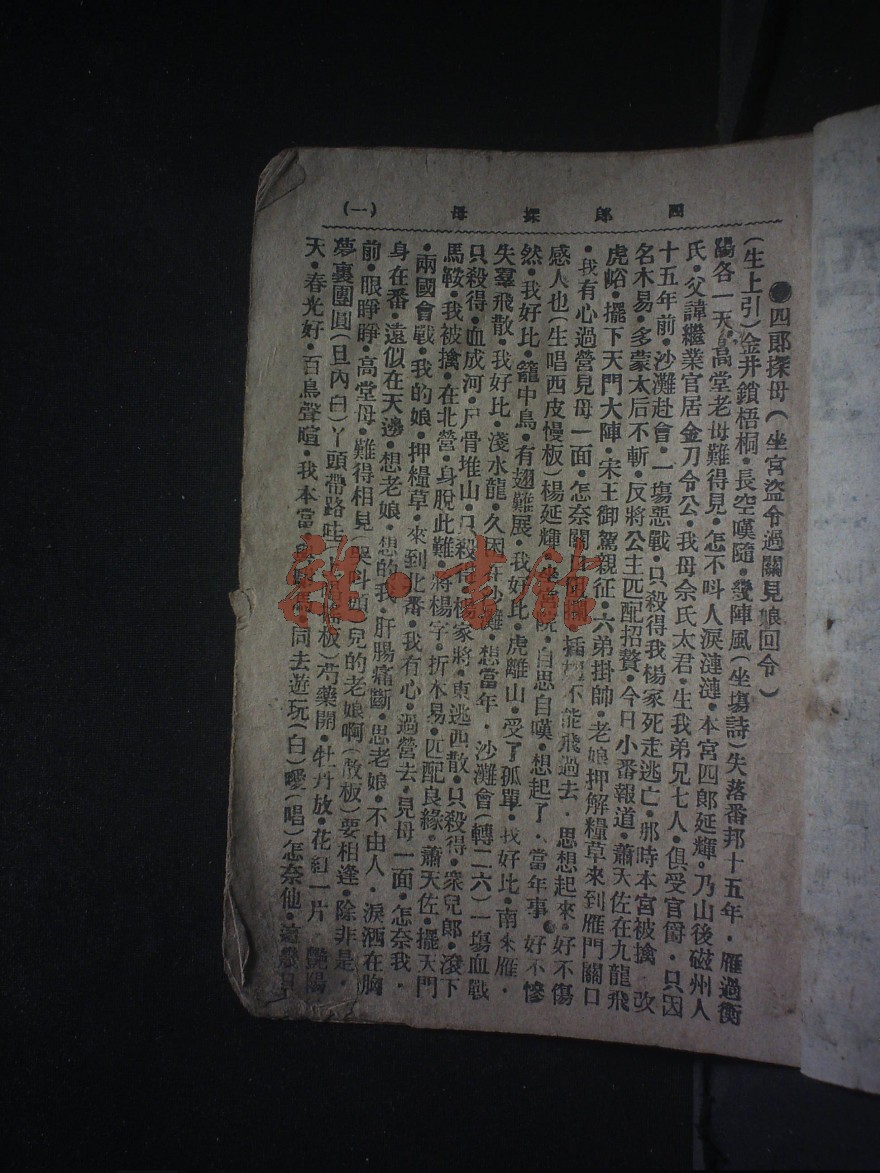 四郎探母 (一)
●四郎探母(坐宮盜令過關見娘回令)
(生上引)金井鎖梧桐•長空嘆隨•幾陣風(坐塲詩)失落番邦十五年•雁過衡
陽各一天•高堂老母難得見•怎不呌人淚漣漣•本宮四郎延輝•乃山後磁州人
氏•父諱繼業官居金刀令公•我母佘氏太君•生我弟兄七人•俱受官爵•只因
十五年前•沙灘赴會•一塲惡戰•只殺得我楊家死走逃亡•那時本宮被擒•改
名木易•多蒙太后不斬•反將公主匹配招贅•今日小番報道•蕭天佐在九龍飛
虎峪•擺下天門大陣•宋王御駕親征•六弟掛師•老娘押解糧草來到雁門關口
•我有心過營見母一面•怎奈關 插 不能飛過去•思想起來•好不傷
感人也(生唱西皮慢板)楊延輝坐宮院•自思自嘆•想起了•當年事•好不慘
然•我好比•籠中鳥•有翅難展•我好比•虎離山•受了孤單•我好比•南來雁•
失羣飛散•我好比•淺水龍•久困在沙灘•想當年•沙灘會(轉二六)一塲血戰
只殺得•血成河•尸骨堆山•只殺得•楊家將•東逃西散•只殺得•衆兒郎•滾下
馬鞍•我被擒•在北營•身脫此難•將楊字•折木易•匹配良緣•蕭天佐•擺天門
•兩國會戰•我的娘•押糧草•來到北番•我有心•過營去•見母一面•怎奈我•
身在番•遠似在天邊•想老娘•想的我•肝腸痛斷•思老娘•不由人•淚洒在胸
前•眼睜睜•高堂母•難得相見(哭呌頭 兒的老娘啊(散板)要相逢•除非是•
夢裏團圓(旦內白)丫頭帶路哇 板)芍藥開•牡丹放•花紅一片•艷陽
天•春光好•百鳥聲喧•我本當 同去遊玩(白)噯(唱)怎奈他•
雜•書館